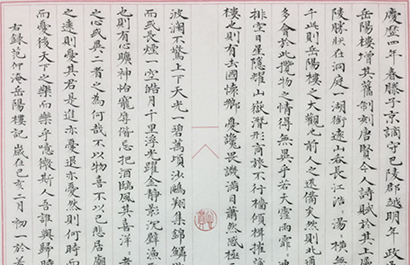 慶歷四年春滕子京謫守巴陵郡越明年政
岳陽樓增其舊制刻唐賢今人詩賦於其上屬
陵勝狀在洞庭一湖銜遠山吞長江浩〻湯〻橫無
千此則岳陽樓之大觀也前人之述備矣然則北
多會於此覽物之情得無異乎若夫霪雨霏
排空日星隱耀山嶽潛形商旅不行檣傾楫摧
樓也則有去國懷鄉憂讒畏譏滿目蕭然感極
波瀾不驚上下天光一碧萬頃沙鷗翔集錦鱗
而或長煙一空皓月千里浮光躍金靜影沉璧漁
也則有心曠神怡寵辱偕忘把酒臨風其喜洋〻者
之心或異二者之為何哉不以物喜不以己悲居廟
之遠則憂其君是進亦憂退亦憂然則何時而
而憂後天下之樂而樂乎噫微斯人吾誰與歸時
右錄范仲淹岳陽樓記 歲在己亥二月初一於